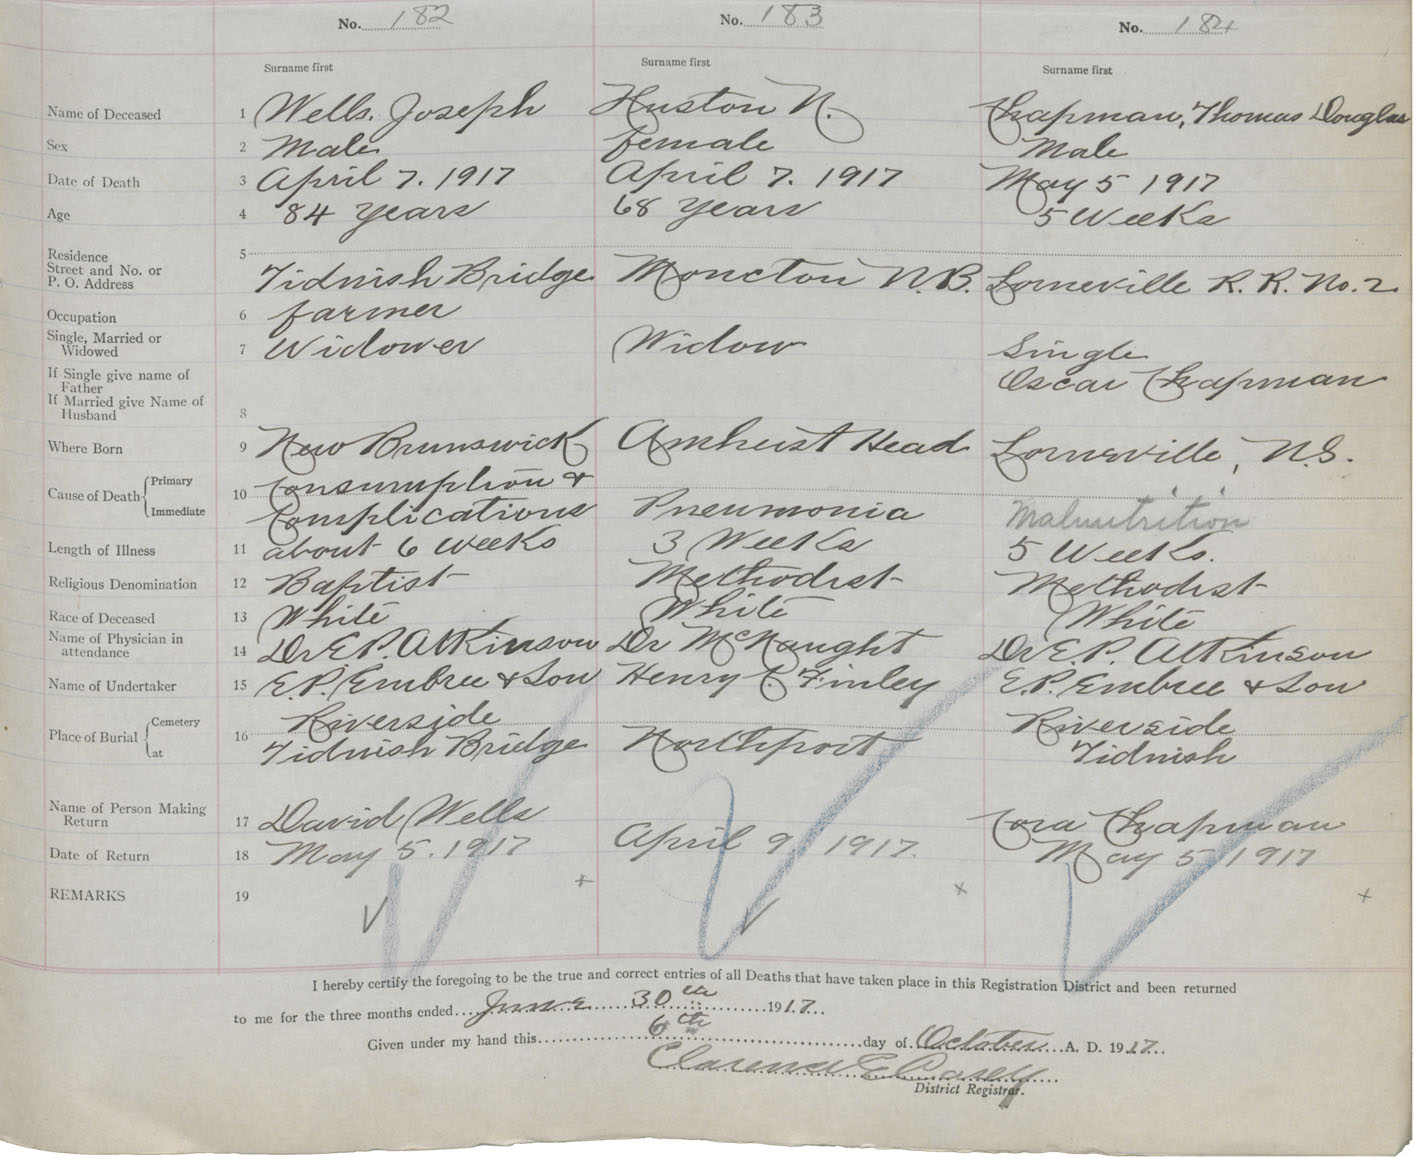 No. 182 No. 183 No. 184
Surname first Surname first Surname first
Name of Deceased 1 Wells, Joseph Huston N. Chapman, Thomas Douglas
Sex 2 Male female Male
Date of Death 3 April 7. 1917 April 7. 1917 May 5 1917
Age 4 84 years 68 years 5 Weeks
Residence 5
Street and No. or
P. O. Address Tidnish Bridge Moncton N.B. Lorneville R. R. No. 2
Occupation 6 farmer
Single, Married or
Widowed 7 Widower Widow Single
If Single give name of
Father Oscar Chapman
If Married give Name of
Husband 8
Where Born 9 New Brunswick Amherst Head Lorneville, N.S.
Cause of Death Primary 10 Consumption &
Immediate Complications Pneumonia Malnutrition
Length of Illness 11 about 6 weeks 3 Weeks 5 Weeks.
Religious Denomination 12 Baptist Methodist Methodist
Race of Deceased 13 White White White
Name of Physician in
attendance 14 Dr E.P. Atkinson Dr McNaught Dr E.P. Atkinson
Name of Undertaker 15 E.P. Embree & Son Henry C. Finley E.P. Embree & Son
Place of Burial Cemetery 16 Riverside Riverside
at Tidnish Bridge Northport Tidnish
Name of Person Making
Return 17 David Wells Cora Chapman
Date of Return 18 May 5. 1917 April 9. 1917. May 5 1917
REMARKS 19
I hereby certify the foregoing to be the true and correct entries of all Deaths that have taken place in this Registration District and been returned
to me for the three months ended June 30th 1917
Given under my hand this 6th day of October A. D. 1917
Clarence E Casey
District Registrar.